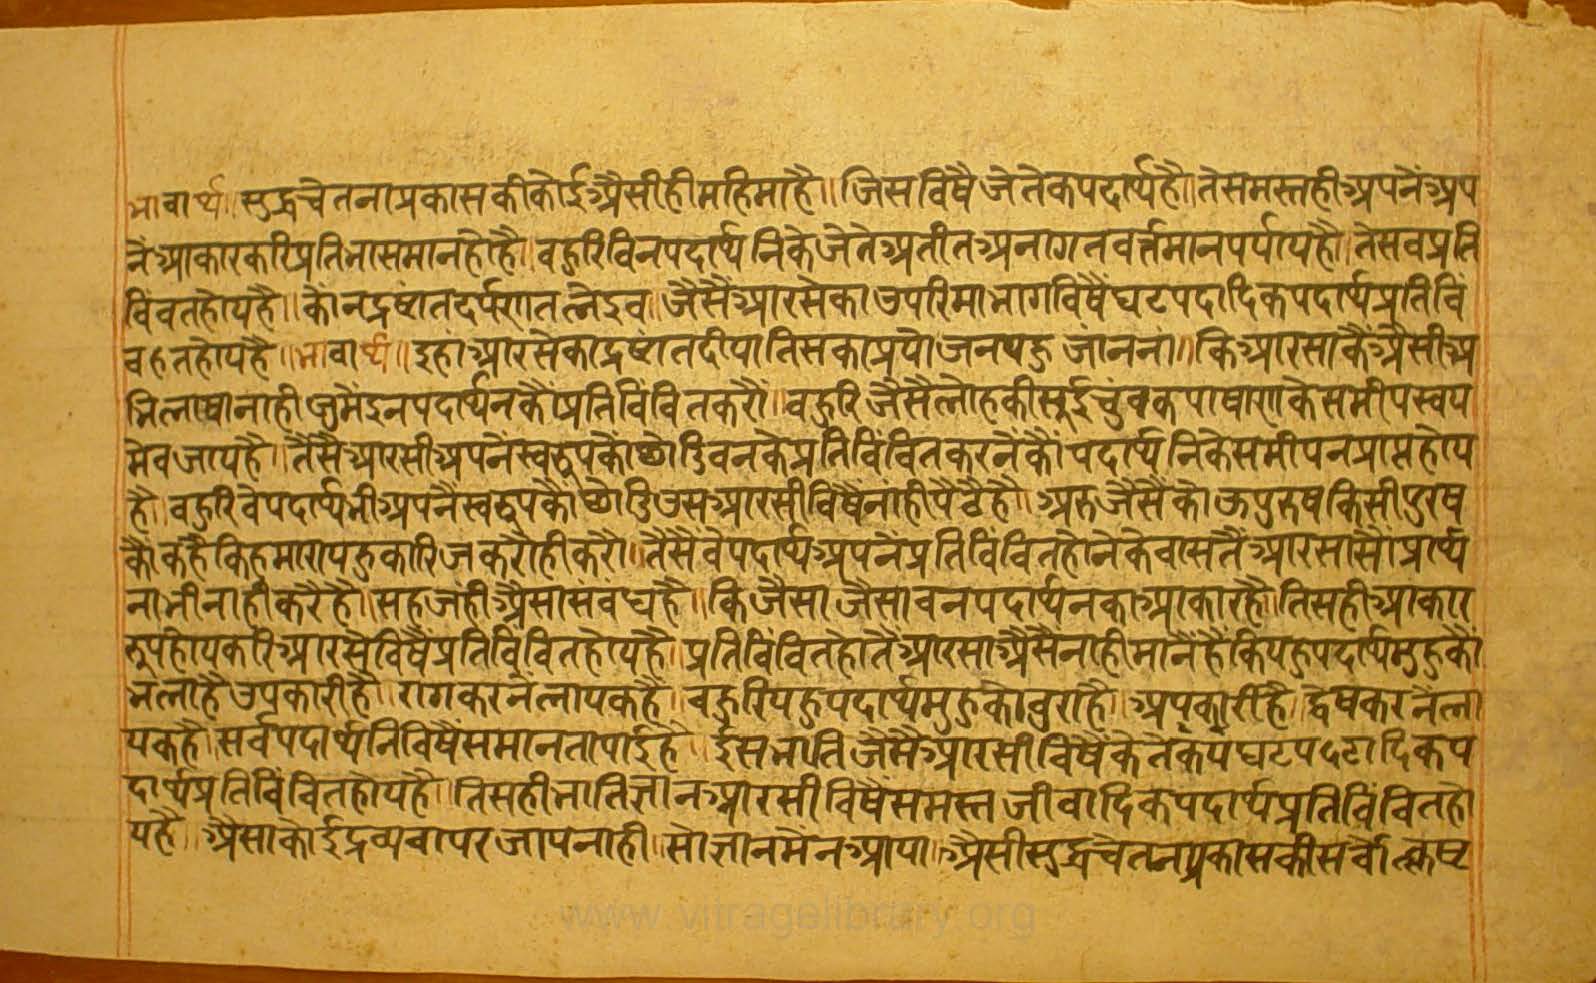 भावार्थ ॥ सुद्धचेतनाप्रकासकीकोईऐसीहीमहिमाहै ॥ जिसविषैजेतेकपदार्थहै ॥ तेसमस्तहीअपनेंअप
नेंआकारकरिप्रतिभासमानहोहै ॥ बहुरिविनपदार्थनिकेजेतेअतीतअनागतवर्त्तमानपर्यायहै ॥ तेसवप्रति
विंवतहोयहै ॥ कोनद्रष्टांतदर्पणतलेइव ॥ जैसैंआरसेकाउपरिमाभागविषैंघटपटादिकपदार्थप्रतिविं
वहतहोयहै ॥ भावार्थ ॥ इहांआरसेकाद्रष्टांतदीपातिसकाप्रयोजनयहुजांननां ॥ किआरसाकैंऐसीअ
भिलाषानाहीजुमैंइनपदार्थनकौंप्रतिविंवितकरौं ॥ बहुरिजैसैलोहकीसूईचुंवकपाषाणकैसमीपस्वय
मेवजायहै ॥ तैसैंआरसीअपनेंस्वरूपकोछोडिवनकेप्रतिविंवितकरनेंकौंपदार्थनिकेसमीपनप्राप्तहोय
है ॥ बहुरिवेपदार्थभीअपनैस्वरूपकौछोडिउसआरसीविषैंनांहीपैठैहै ॥ अरुजैसैंकोऊपुरुषकिसीपुरष
कौकहैकिहमारायहुकारिजकरौहीकरौ ॥ तैसैंवेपदार्थअपनेंप्रतिविंवितहोनेकेवासतैंआरसासौंप्रार्थ
नाभीनाहीकरैहै ॥ सहजंहीऐसासंवंधहै ॥ किजैसाजैसावनपदार्थनकाआकारहै ॥ तिसहीआकार
रूपहोयकरिआरसेविषैंप्रतिविंवितहोयहै ॥ प्रतिविंवितहोतैआरसाऐसैनाहीमानैंहैकियहुपदार्थमुहुकौं
भलाहैउपकारीहै ॥ रागकरनेंलायकहै ॥ बहुरियहुपदार्थमुहुकोवुराहै ॥ अपकारीहै ॥ द्वेषकरनेला
यकहै ॥ सर्वपदार्थनिविषैंसमानतापाईहै ॥ ईसभातिजैसैआरसीविषैंकेतेकघटपटादिकप
दार्थप्रतिविंवितहोयहै ॥ तिसहीभातिज्ञानआरसीविषैंसमस्तजीवादिकपदार्थप्रतिविंवितहो
यहै ॥ ऐसाकोईद्रव्यवापरजायनाही ॥ सोज्ञानमैनआया ॥ ऐसीसुद्धचेतनप्रकासकीसर्वोत्कृष्ट
www.vitragelibrary.org